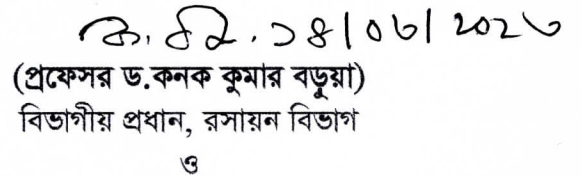 ১৪/০৬/২০২৩
(প্রফেসর ড.কনক কুমার বড়ুয়া)
বিভাগীয় প্রধান, রসায়ন বিভাগ
ও